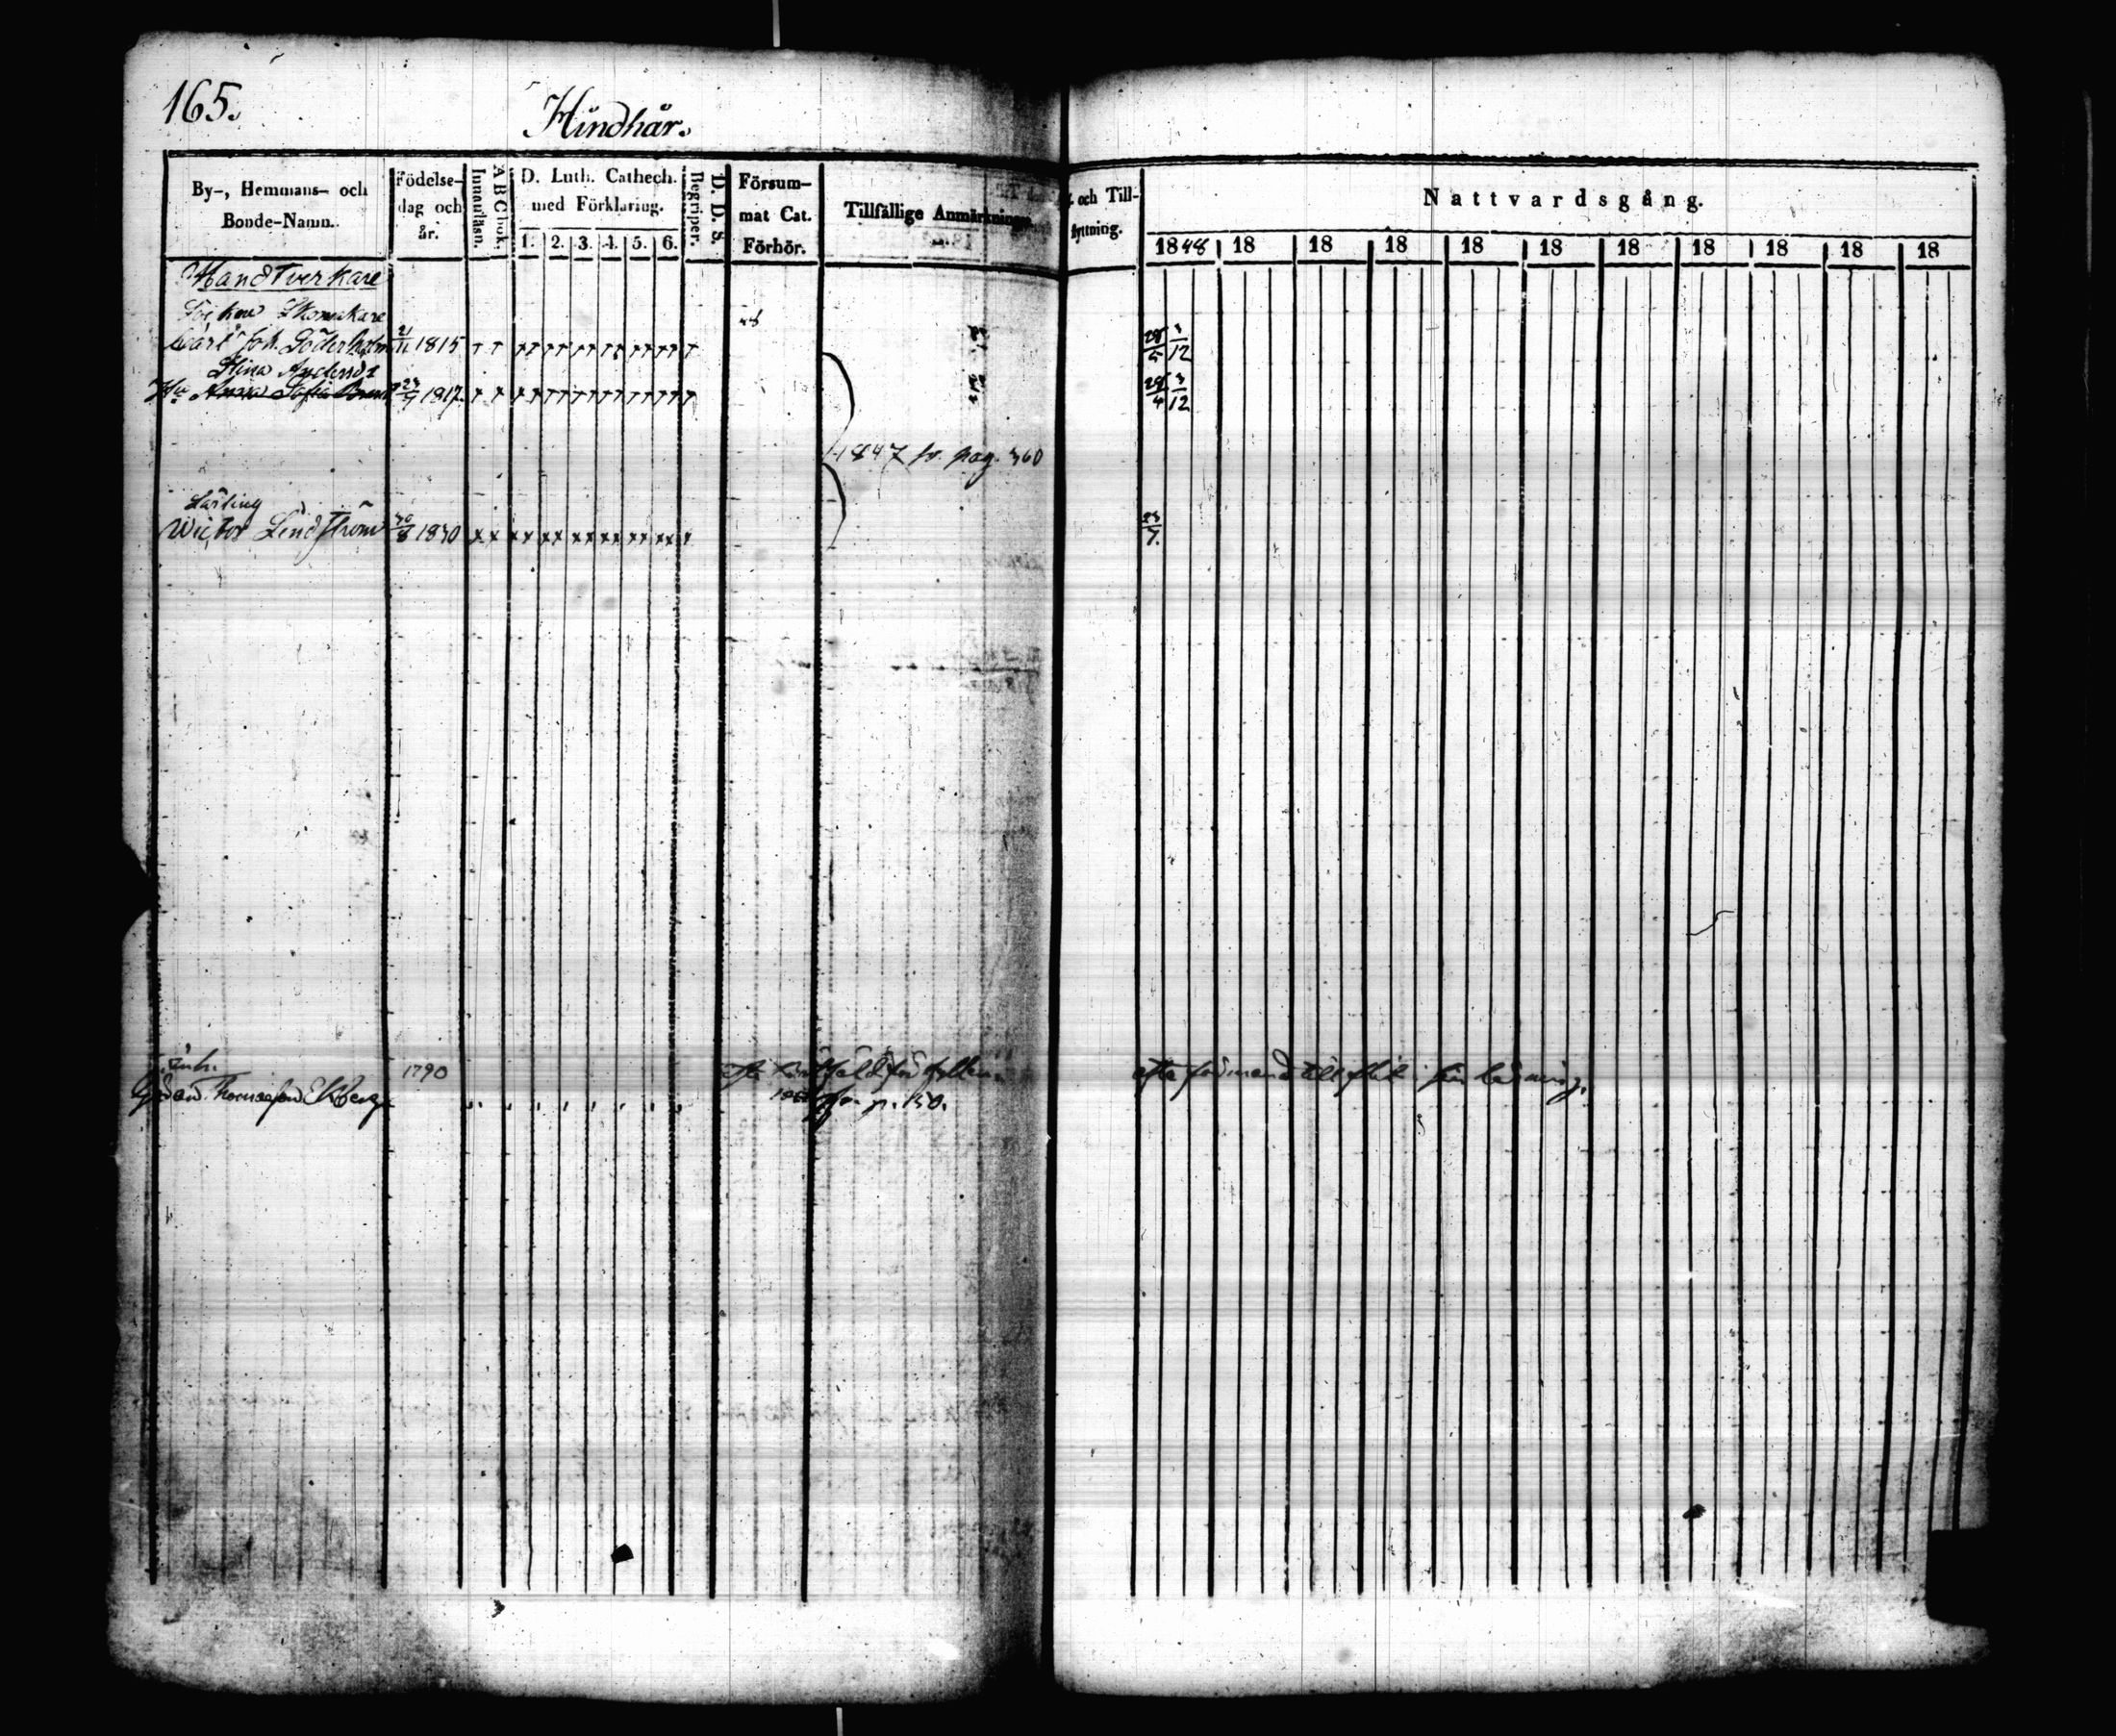 165.
Hindhår.
By-, Hemmans- och Bonde-Namn.
Födelse-dag och år.
Innanläsn.
A B C bok.
D. Luth. Cathech. med Förklaring.
1. 2. 3. 4. 5. 6.
Begriper.
D. D. S.
Försum-mat Cat. Förhör.
Tillfällige Anmärkningar.
och Till-
flyttning.
Nattvardsgång.
1848 18 18 18 18 18 18 18 18 18 18
Handtverkare
Socken Skomakare
Carl Joh. Söderholm 21/11 1815
28/5 3/12
Stina Andersd:r
Hu Anna Sofia 23/9 1817
28/4 3/12
1847 fr. pag. 360
Lärling
Wictor Lindström 30/8 1830
23/7.
Inh.
Thomasson Ekberg 1790
fr. p. 150.